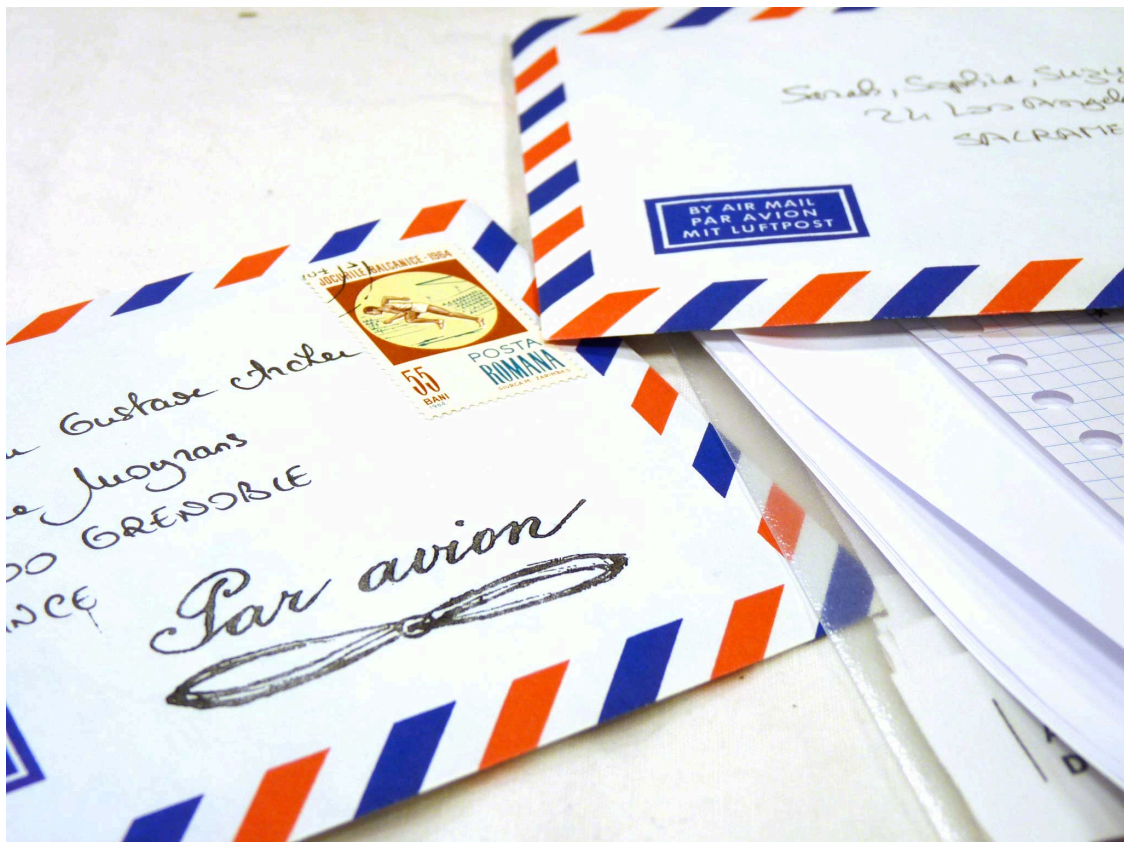 Sarah, Sophia, Suzy
24 Los Angel
SACRAME
BY AIR MAIL
PAR AVION
MIT LUFTPOST
JOCURILE BALCANICE-1964
POSTA
ROMANA
55
BANI
1964
Gustave Archer
Mograns
00 GRENOBLE
NCE
Par avion
D